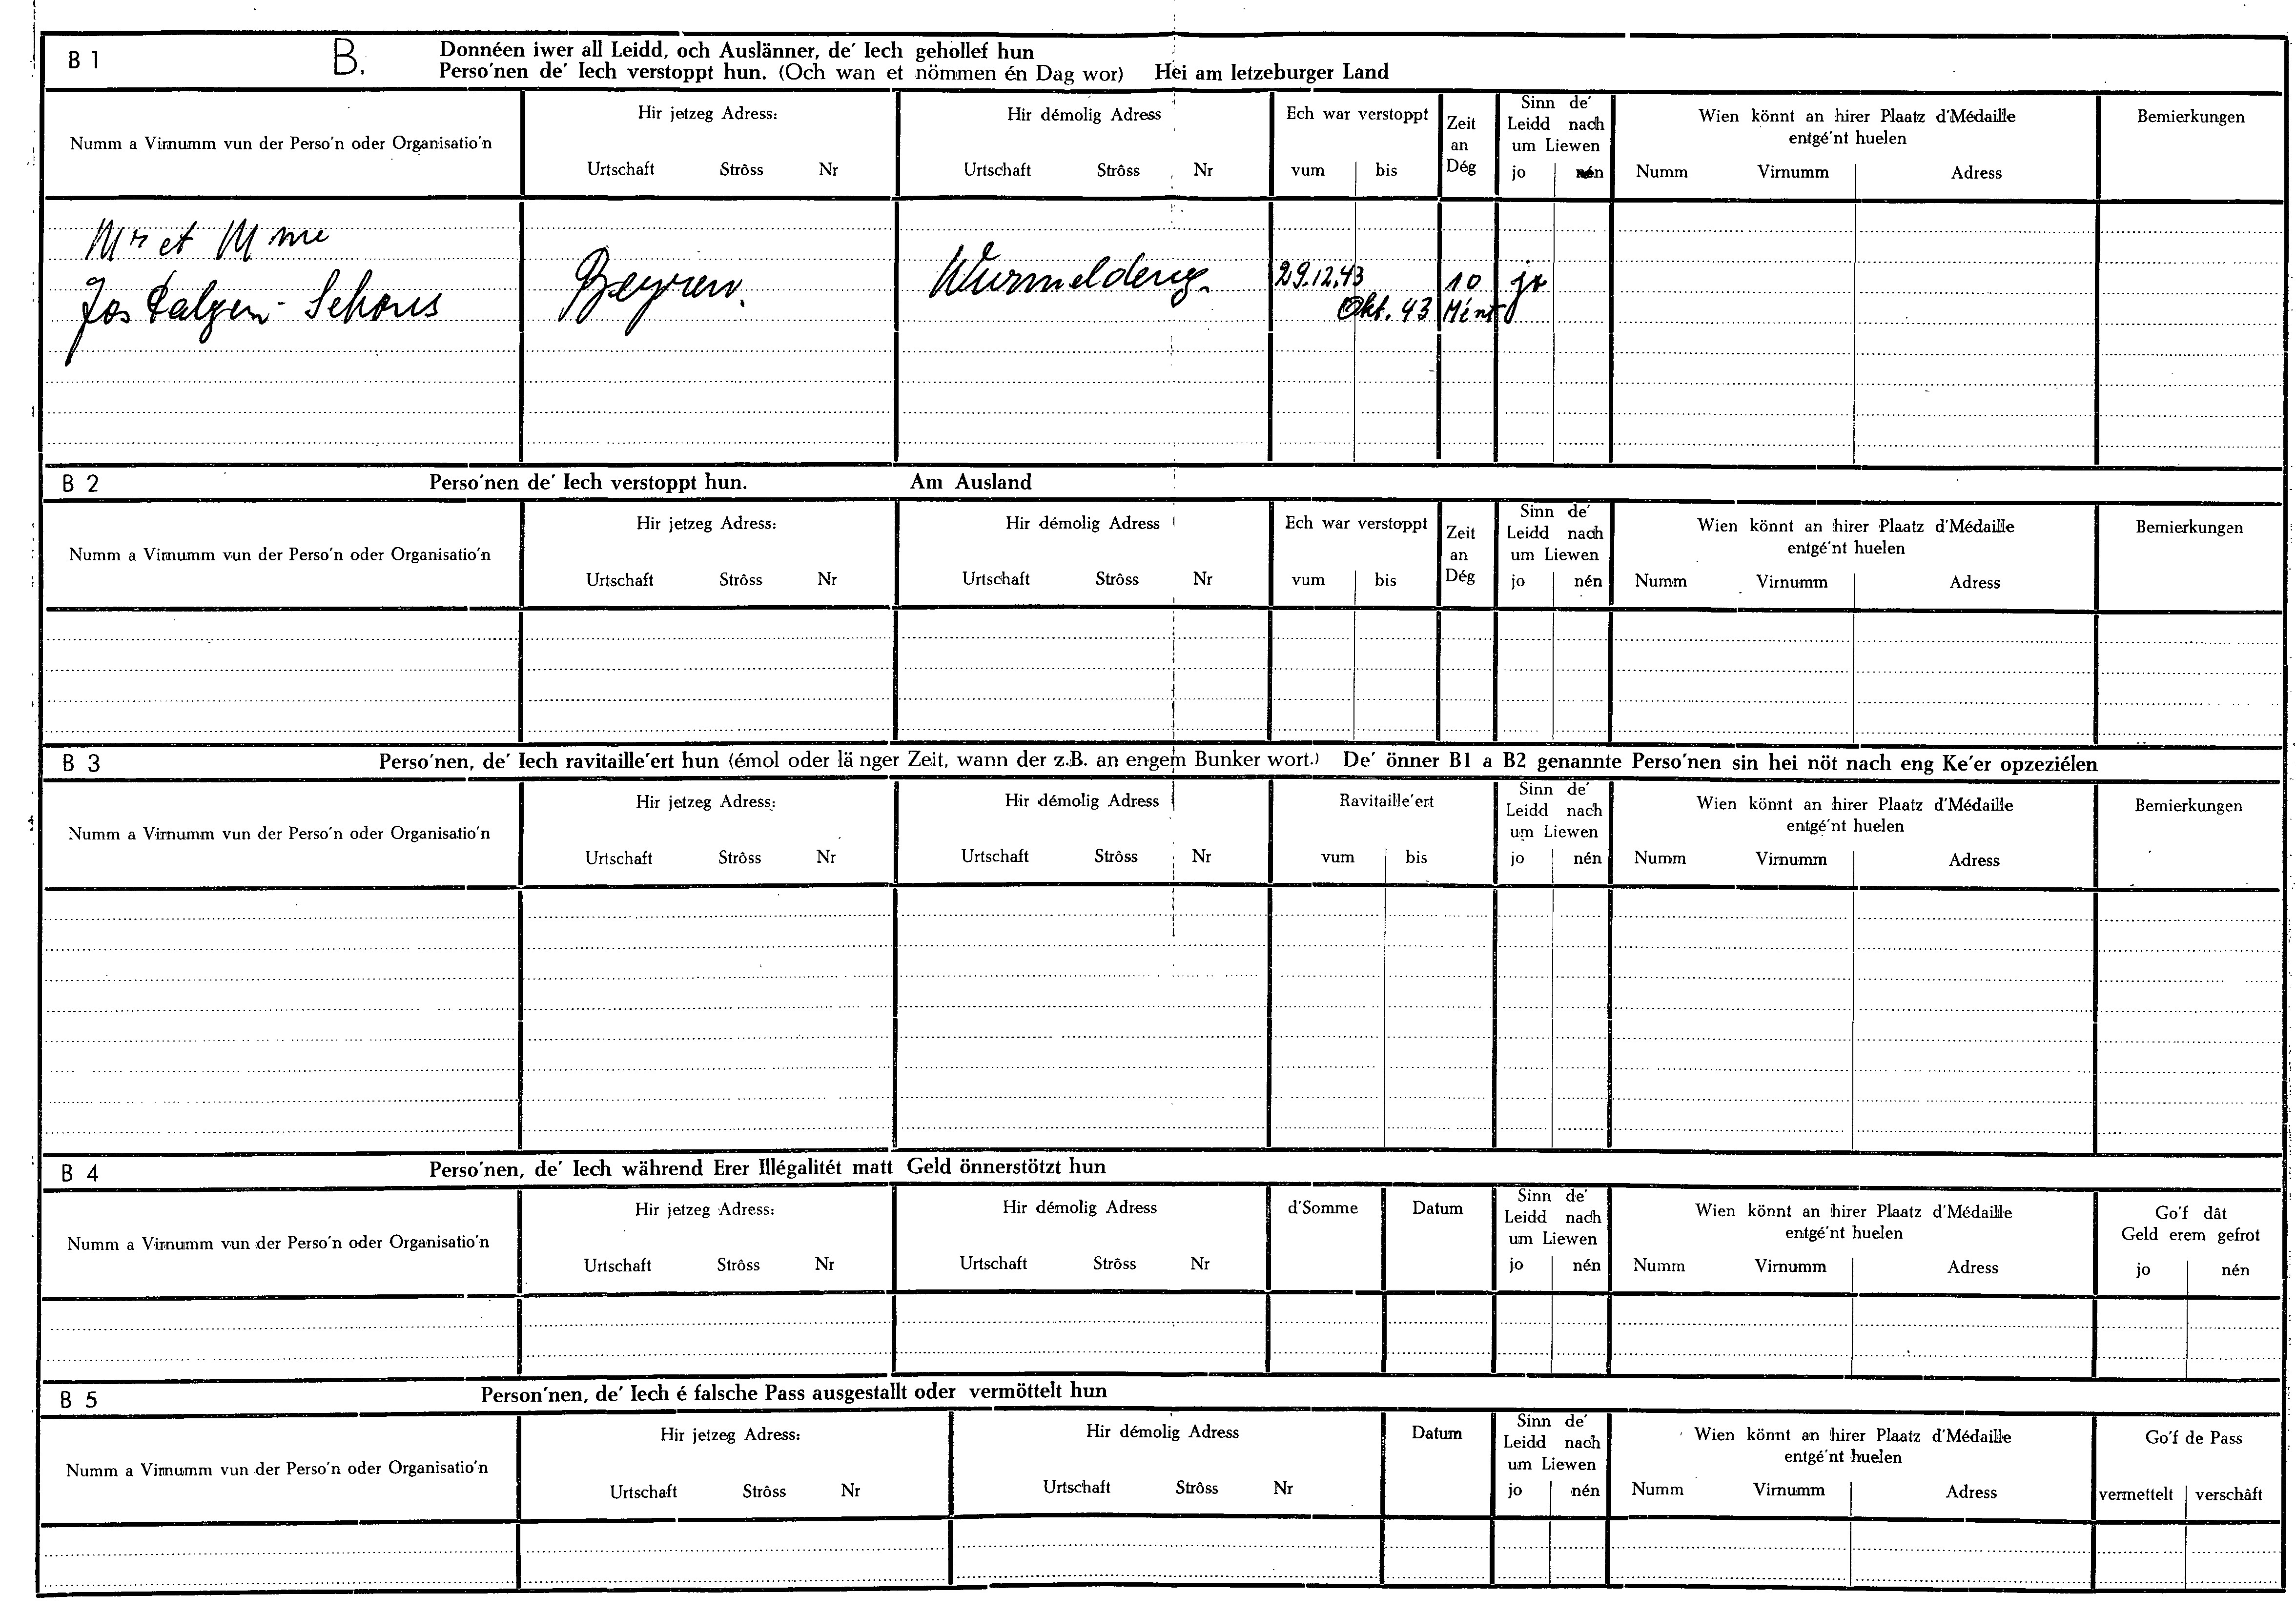 B 1 B. Donnéen iwer all Leidd, och Auslänner, de' Iech gehollef hun
Perso'nen de' Iech verstoppt hun. (Och wan et nömmen én Dag wor) Hei am letzeburger Land
Numm a Virnumm vun der Perso'n oder Organisatio'n
Hir jetzeg Adress:
Urtschaft Strôss Nr
Hir démolig Adress
Urtschaft Strôss Nr
Ech war verstoppt
vum bis
Zeit
an
Dég
Sinn de'
Leidd nach
um Liewen
jo nén
Wien könnt an hirer Plaatz d'Médaille
entgé'nt huelen
Numm Virnumm Adress
Bemierkungen
Mr et Mme
Jos Schons
Beyren.
29.12.43
Okt. 43
10
jo
B 2 Perso'nen de' Iech verstoppt hun. Am Ausland
Numm a Virnumm vun der Perso'n oder Organisatio'n
Hir jetzeg Adress:
Urtschaft Strôss Nr
Hir démolig Adress
Urtschaft Strôss Nr
Ech war verstoppt
vum bis
Zeit
an
Dég
Sinn de'
Leidd nach
um Liewen
jo nén
Wien könnt an hirer Plaatz d'Médaille
entgé'nt huelen
Numm Virnumm Adress
Bemierkungen
B 3 Perso'nen, de' Iech ravitaille'ert hun (émol oder länger Zeit, wann der z.B. an engem Bunker wort.) De' önner B1 a B2 genannte Perso'nen sin hei nöt nach eng Ke'er opzeziélen
Numm a Virnumm vun der Perso'n oder Organisatio'n
Hir jetzeg Adress:
Urtschaft Strôss Nr
Hir démolig Adress
Urtschaft Strôss Nr
Ravitaille'ert
vum bis
Sinn de'
Leidd nach
um Liewen
jo nén
Wien könnt an hirer Plaatz d'Médaille
entgé'nt huelen
Numm Virnumm Adress
Bemierkungen
B 4 Perso'nen, de' Iech während Erer Illégalitét matt Geld önnerstötzt hun
Numm a Virnumm vun der Perso'n oder Organisatio'n
Hir jetzeg Adress:
Urtschaft Strôss Nr
Hir démolig Adress
Urtschaft Strôss Nr
d'Somme
Datum
Sinn de'
Leidd nach
um Liewen
jo nén
Wien könnt an hirer Plaatz d'Médaille
entgé'nt huelen
Numm Virnumm Adress
Go'f dât
Geld erem gefrot
jo nén
B 5 Person'nen, de' Iech é falsche Pass ausgestallt oder vermöttelt hun
Numm a Virnumm vun der Perso'n oder Organisatio'n
Hir jetzeg Adress:
Urtschaft Strôss Nr
Hir démolig Adress
Urtschaft Strôss Nr
Datum
Sinn de'
Leidd nach
um Liewen
jo nén
Wien könnt an hirer Plaatz d'Médaille
entgé'nt huelen
Numm Virnumm Adress
Go'f de Pass
vermettelt verschâft